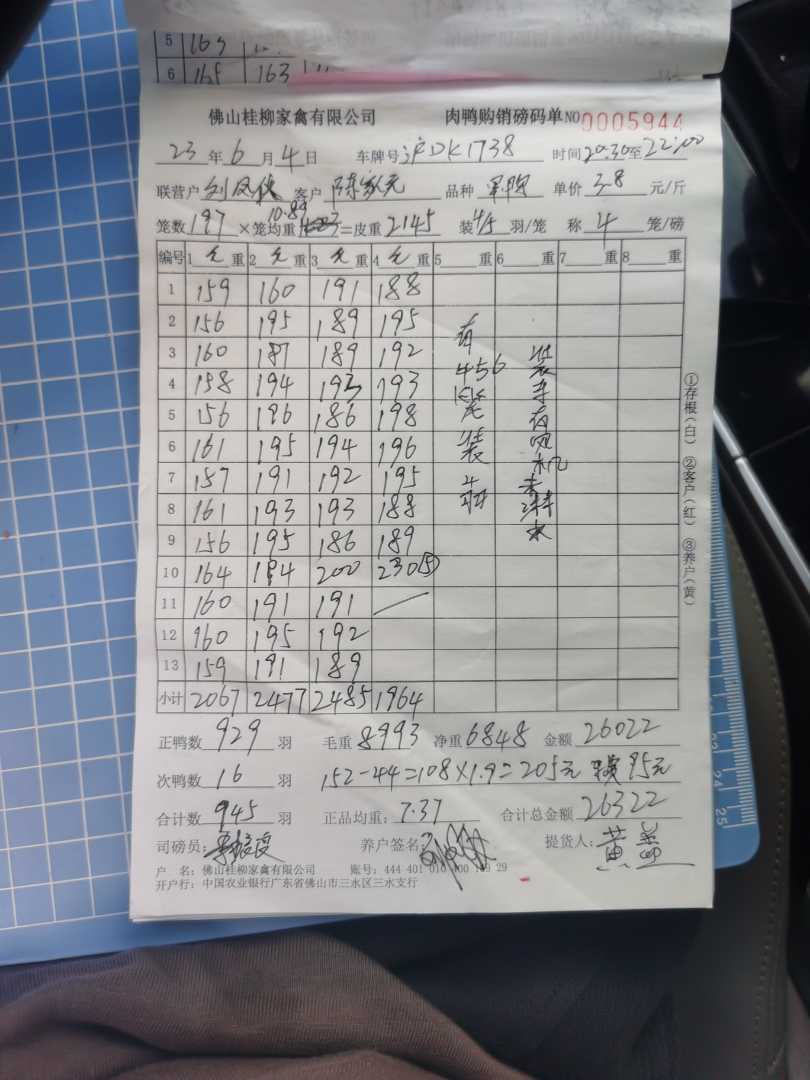 5 163
6 165 163
佛山桂柳家禽有限公司 肉鸭购销磅码单NO 0005944
23年6月4日 车牌号沪DK1738 时间20:30至22:00
联营户刘凤侠 客户陈家元 品种 单价3.8元/斤
笼数197×笼均重10.89=皮重2145 装4/5羽/笼 称4笼/磅
编号 1毛重 2毛重 3毛重 4毛重 5重 6重 7重 8重
1 159 160 191 188
2 156 195 189 195
3 160 187 189 192
4 158 194 193 193
5 156 196 186 198
6 161 195 194 196
7 157 191 192 195
8 161 193 193 188
9 156 195 186 189
10 164 194 200 230⑤
11 160 191 191
12 160 195 192
13 159 191 189
小计 2067 2477 2485 1964
有
456
装
车
装
车
有
吧
机
未
淋
水
正鸭数929羽 毛重8993 净重6848 金额26022
次鸭数16羽 152-44=108×1.9=205元 95元
合计数945羽 正品均重:7.37 合计总金额26322
司磅员: 养户签名: 提货人:黄
户 名:佛山桂柳家禽有限公司 账号:444 401 010 400 29
开户行:中国农业银行广东省佛山市三水区三水支行
①存根(白) ②客户(红) ③养户(黄)